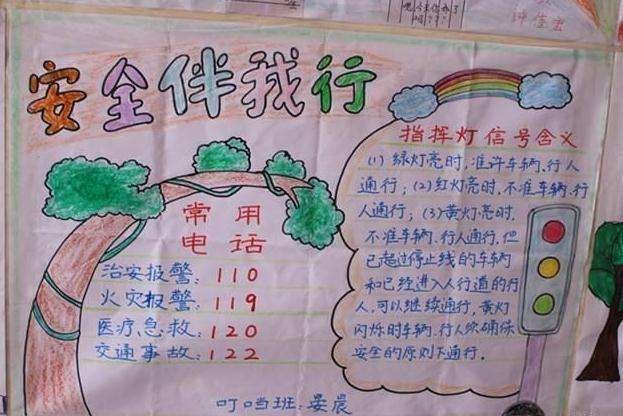 安全伴我行
常用
电话
治安报警：110
火灾报警：119
医疗急救：120
交通事故：122
叮当班：晏晨
指挥灯信号含义
(1)绿灯亮时，准许车辆、行人
通行；(2)红灯亮时，不准车辆、行
人通行；(3)黄灯亮时，
不准车辆、行人通行，但
已超过停止线的车辆
和已经进入人行道的行
人，可以继续通行，黄灯
闪烁时车辆、行人须确保
安全的原则下通行。